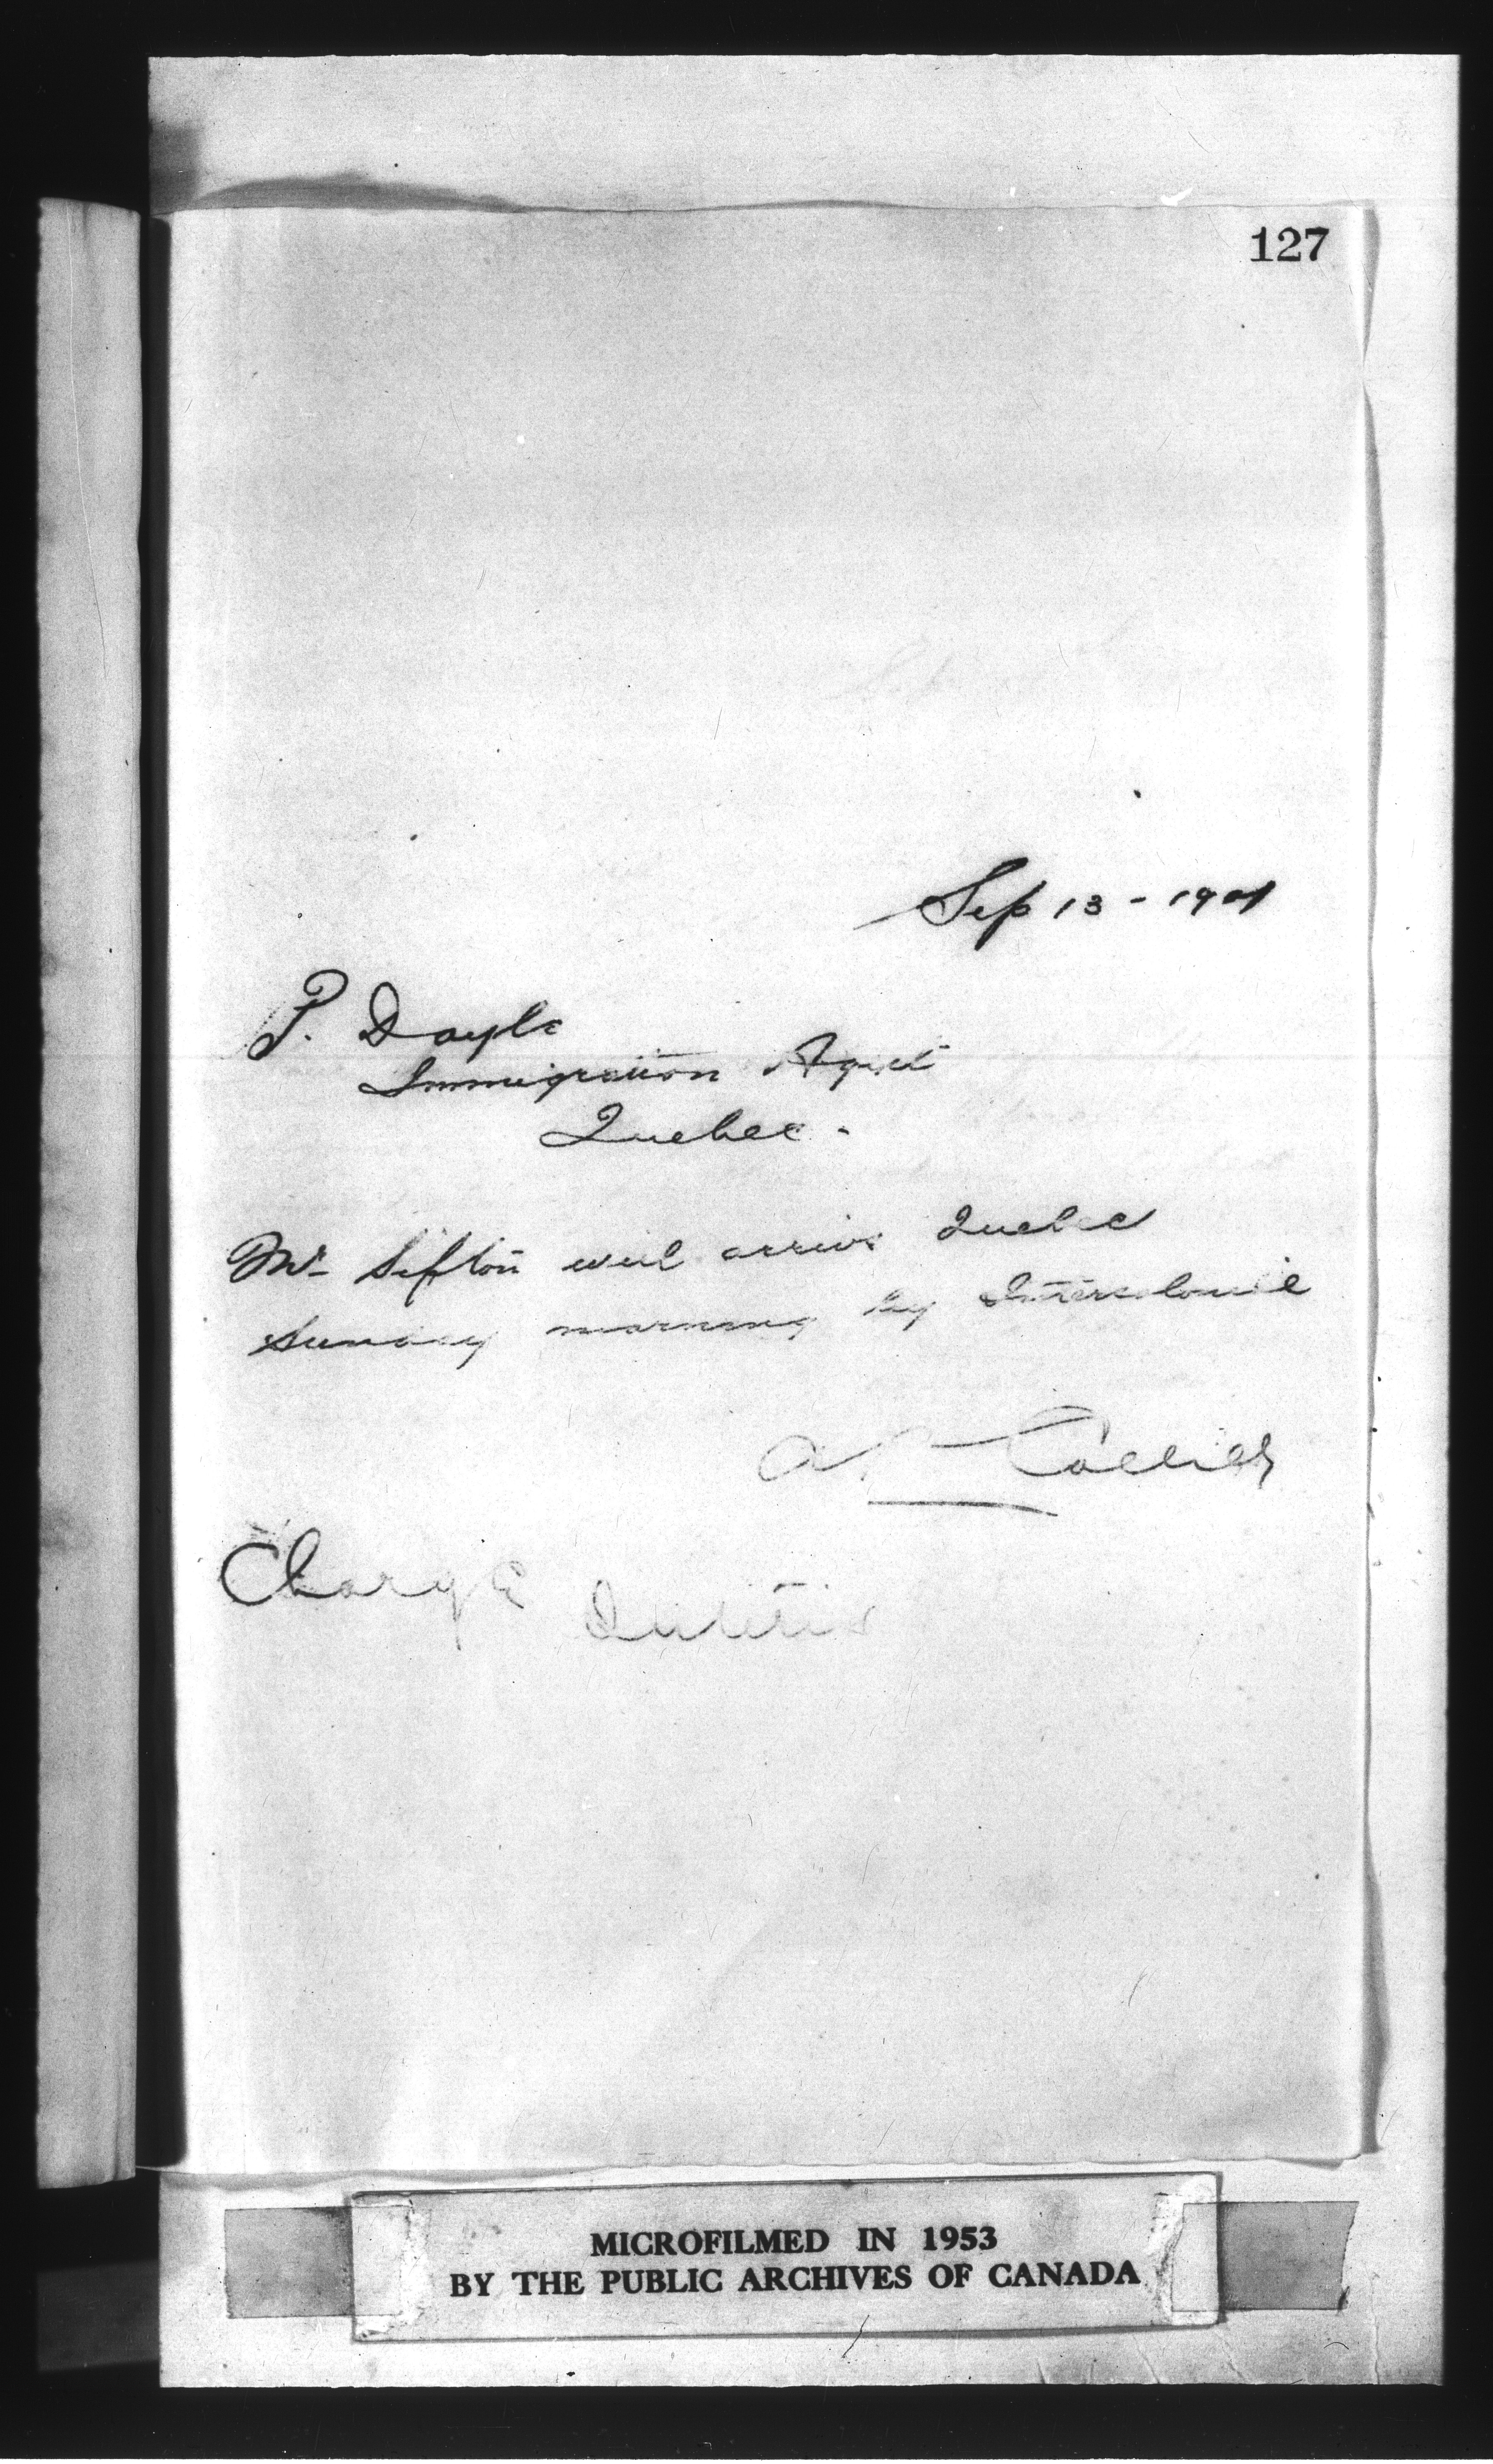 127
Sep 13 - 1901
P. Doyle
Immigration Agent
Quebec.
Mr Sifton will arrive Quebec
Sunday morning by Intercolonial
A P Collier
Charge Interior
MICROFILMED IN 1953
BY THE PUBLIC ARCHIVES OF CANADA